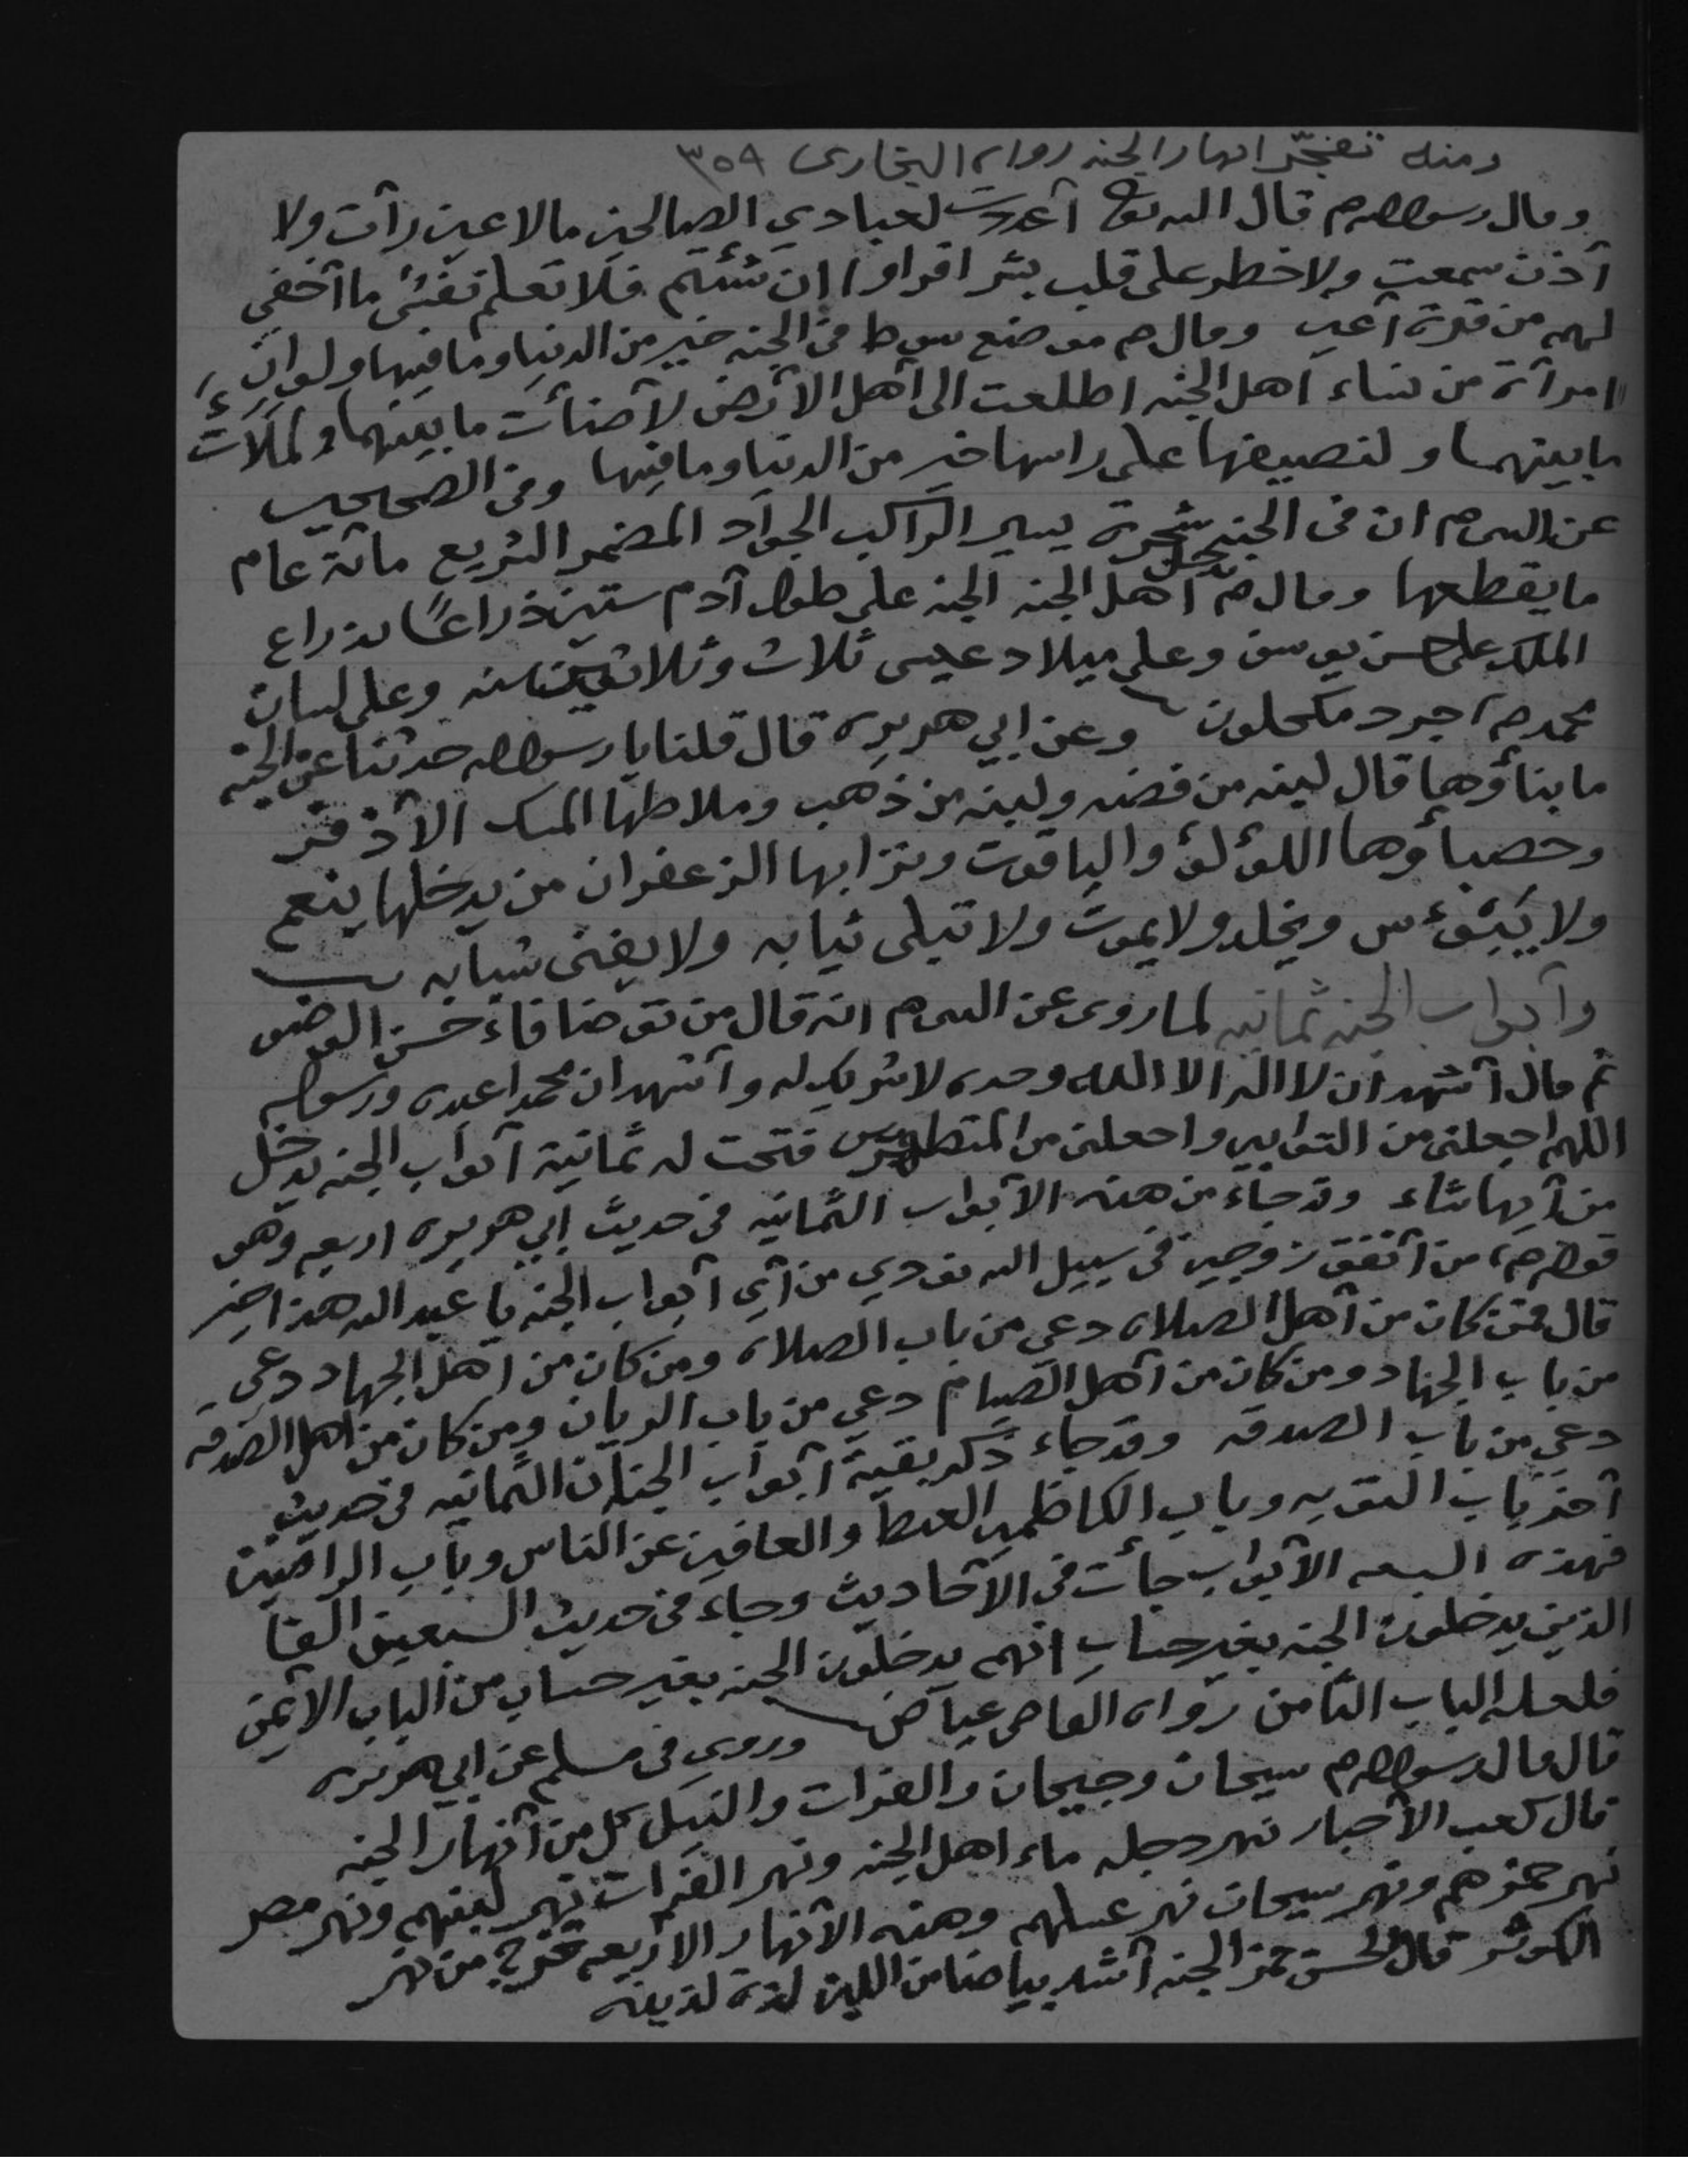 ومنه تفجّر انهار الجنه رواه البخارى ٣٥٩
وقال رسول الله م قال الله تعا آعددت لعبادي الصالحين مالا عين رآت ولا
آذن سمعت ولا خطر على قلب بشر اقراوا ان شئتم فلا تعلم نفس ما آخفي
لهم من قرة آعين وقال م موضع سوط في الجنه خير من الدنيا وما فيها ولو ان
امرآة من نساء آهل الجنه اطلعت الى آهل الآرض لآضأت ما بينهما ولملآت
ما بينهما ولنصيفها على راسها خير من الدنيا وما فيها وفي الصحيحين
عن النبي م ان في الجنه شجرة يسير الراكب الجوآد المضمر السريع مائة عام
ما يقطعها وقال م يدخل آهل الجنه الجنه على طول آدم ستين ذراعًا بذراع
الملك على حسن يوسف وعلى ميلاد عيسى ثلاث وثلاثين سنه وعلى لسان
محمد م جرد مكحلون وعن ابي هريره قال قلنا يا رسول الله حدثنا عن الجنه
ما بناؤها قال لبنه من فضه ولبنه من ذهب وملاطها المسك الآذفر
وحصبأوها اللؤلؤ والياقوت وترابها الزعفران من يدخلها ينعم
ولا يبئوس ويخلد ولا يموت ولا تبلى ثيابه ولا يفنى شبابه
وآبواب الجنه ثمانيه لما روى عن النبي م انه قال من توضا فاء حسن الوضو
ثم قال آشهد ان لا اله الا الله وحده لا شريك له وآشهد ان محمدا عبده ورسوله
اللهم اجعلني من التوابين واجعلني من المتطهرين فتحت له ثمانية آبواب الجنه يدخل
من آيها شاء وقد جاء من هذه الآبواب الثمانيه في حديث ابي هريره اربعه وهو
قوله م من آنفق زوجين في سبيل الله نودي من آي آبواب الجنه يا عبد الله هذا خير
قال فمن كان من آهل الصلاه دعي من باب الصلاه ومن كان من اهل الجهاد دعي
من باب الجهاد ومن كان من آهل الصيام دعي من باب الريان ومن كان من اهل الصدقه
دعي من باب الصدقه وقد جاء ذكر بقية آبواب الجنان الثمانيه في حديث
آخر باب التوبه وباب الكاظمين الغيظ والعافين عن الناس وباب الراضين
فهذه السبعه الآبواب جأت في الآحاديث وجاء في حديث السبعين آلفا
الذين يدخلون الجنه بغير حساب انهم يدخلون الجنه بغير حساب من الباب الآيمن
فلعله الباب الثامن رواه القاضي عياض وروي في مسلم عن ابي هريره
قال قال رسول الله م سيحان وجيحان والفرات والنيل كل من آنهار الجنه
قال كعب الآحبار نهر دجله ماء اهل الجنه ونهر الفرات نهر لبنهم ونهر مصر
نهر خمرهم ونهر سيحان نهر عسلهم وهذه الآنهار الآربعه تخرج من نهر
الكوثر قال الحسن خمر الجنه آشد بياضا من اللبن لذة لذيذه